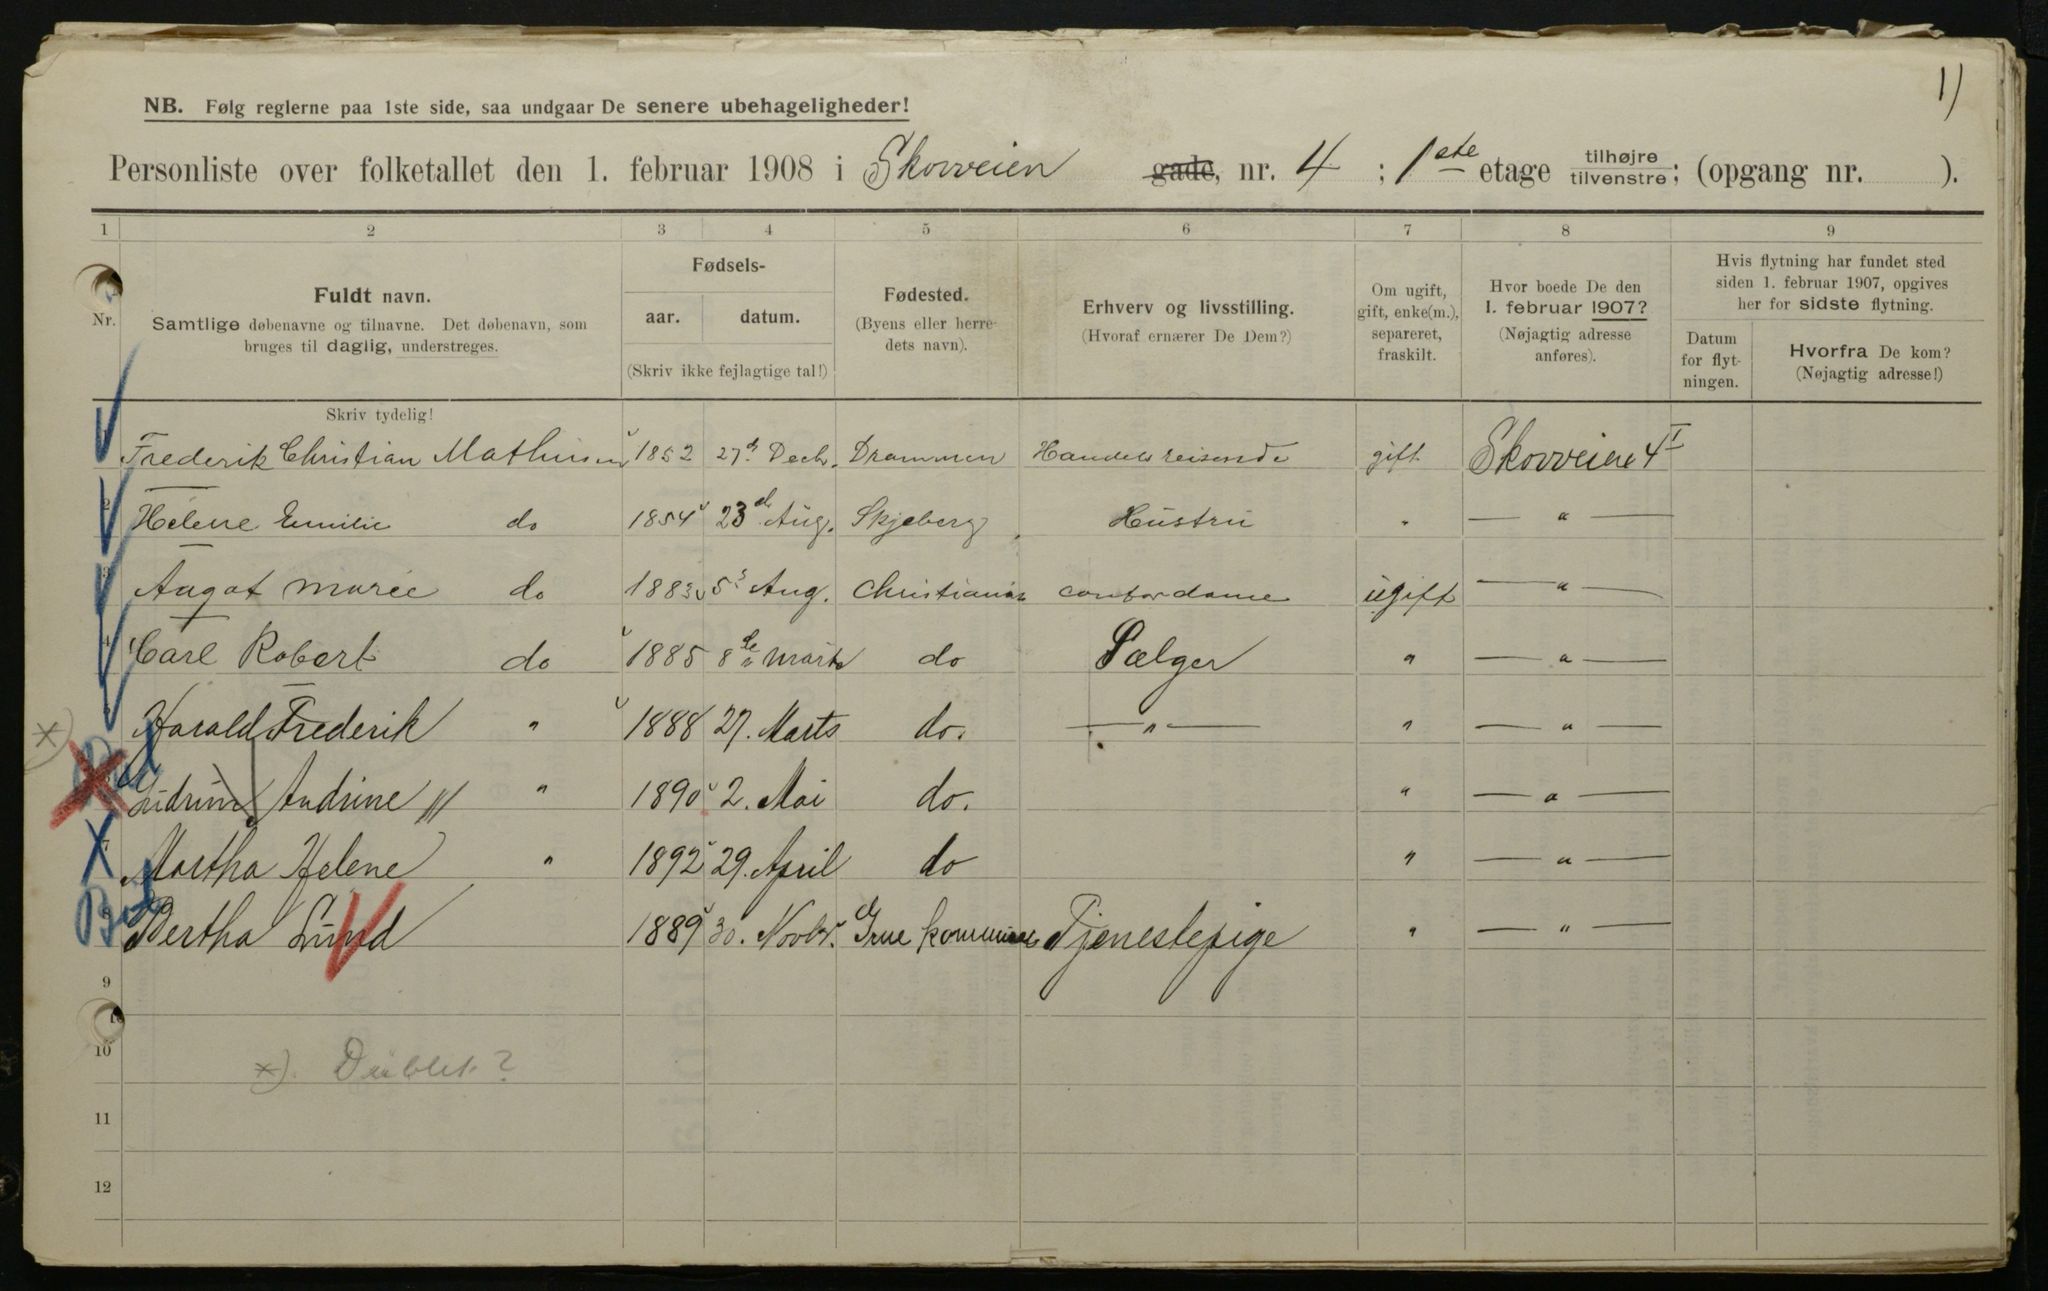 1)
NB. Følg reglerne paa 1ste side, saa undgaar De senere ubehageligheder!
Personliste over folketallet den 1. februar 1908 i Skovveien gade, nr. 4 ; 1ste etage tilhøjre tilvenstre; (opgang nr. ).
1 2 3 4 5 6 7 8 9
Nr.
Fuldt navn.
Samtlige døbenavne og tilnavne. Det døbenavn, som
bruges til daglig, understreges.
Skriv tydelig!
Fødsels-
aar. datum.
(Skriv ikke fejlagtige tal!)
Fødested.
(Byens eller herre-
dets navn).
Erhverv og livsstilling.
(Hvoraf ernærer De Dem?)
Om ugift,
gift, enke(m.),
separeret,
fraskilt.
Hvor boede De den
1. februar 1907?
(Nøjagtig adresse
anføres).
Hvis flytning har fundet sted
siden 1. februar 1907, opgives
her for sidste flytning.
Datum
for flyt-
ningen.
Hvorfra De kom?
(Nøjagtig adresse!)
Frederik Christian Mathisen 1852 27d Decb. Drammen Handelsreisende gift Skovveien 4 I
2 Helene Emilie do 1854 23d Aug. Skjeberg Hustru " — " —
3 Aagot Marie do 1883 5 Aug. Christiania contordame ugift — " —
4 Carl Robert do 1885 8de Marts do Sælger " — " —
5 Harald Frederik " 1888 27. Marts do. — " — " — " —
*)
Gudrun Andrine " 1890 2. Mai do. " — " —
7 Martha Helene " 1892 29. April do " — " —
8 Bertha Lund 1889 30. Novbr. Grue kommune Tjenestepige " — " —
9
10
*). Dublet?
11
12